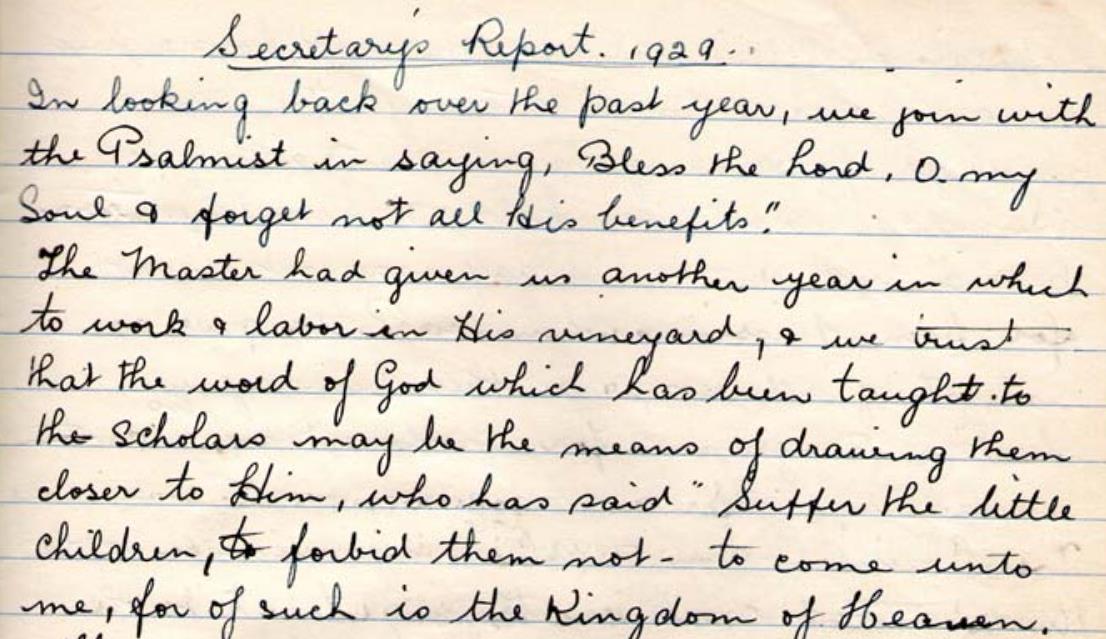 Secretary's Report. 1929.
In looking back over the past year, we join with
the Psalmist in saying, Bless the Lord, O. my
Soul & forget not all His benefits."
The Master had given us another year in which
to work & labor in His vineyard, & we trust
that the word of God which has been taught to
the scholars may be the means of drawing them
closer to Him, who has said "Suffer the little
children, to forbid them not - to come unto
me, for of such is the Kingdom of Heaven.